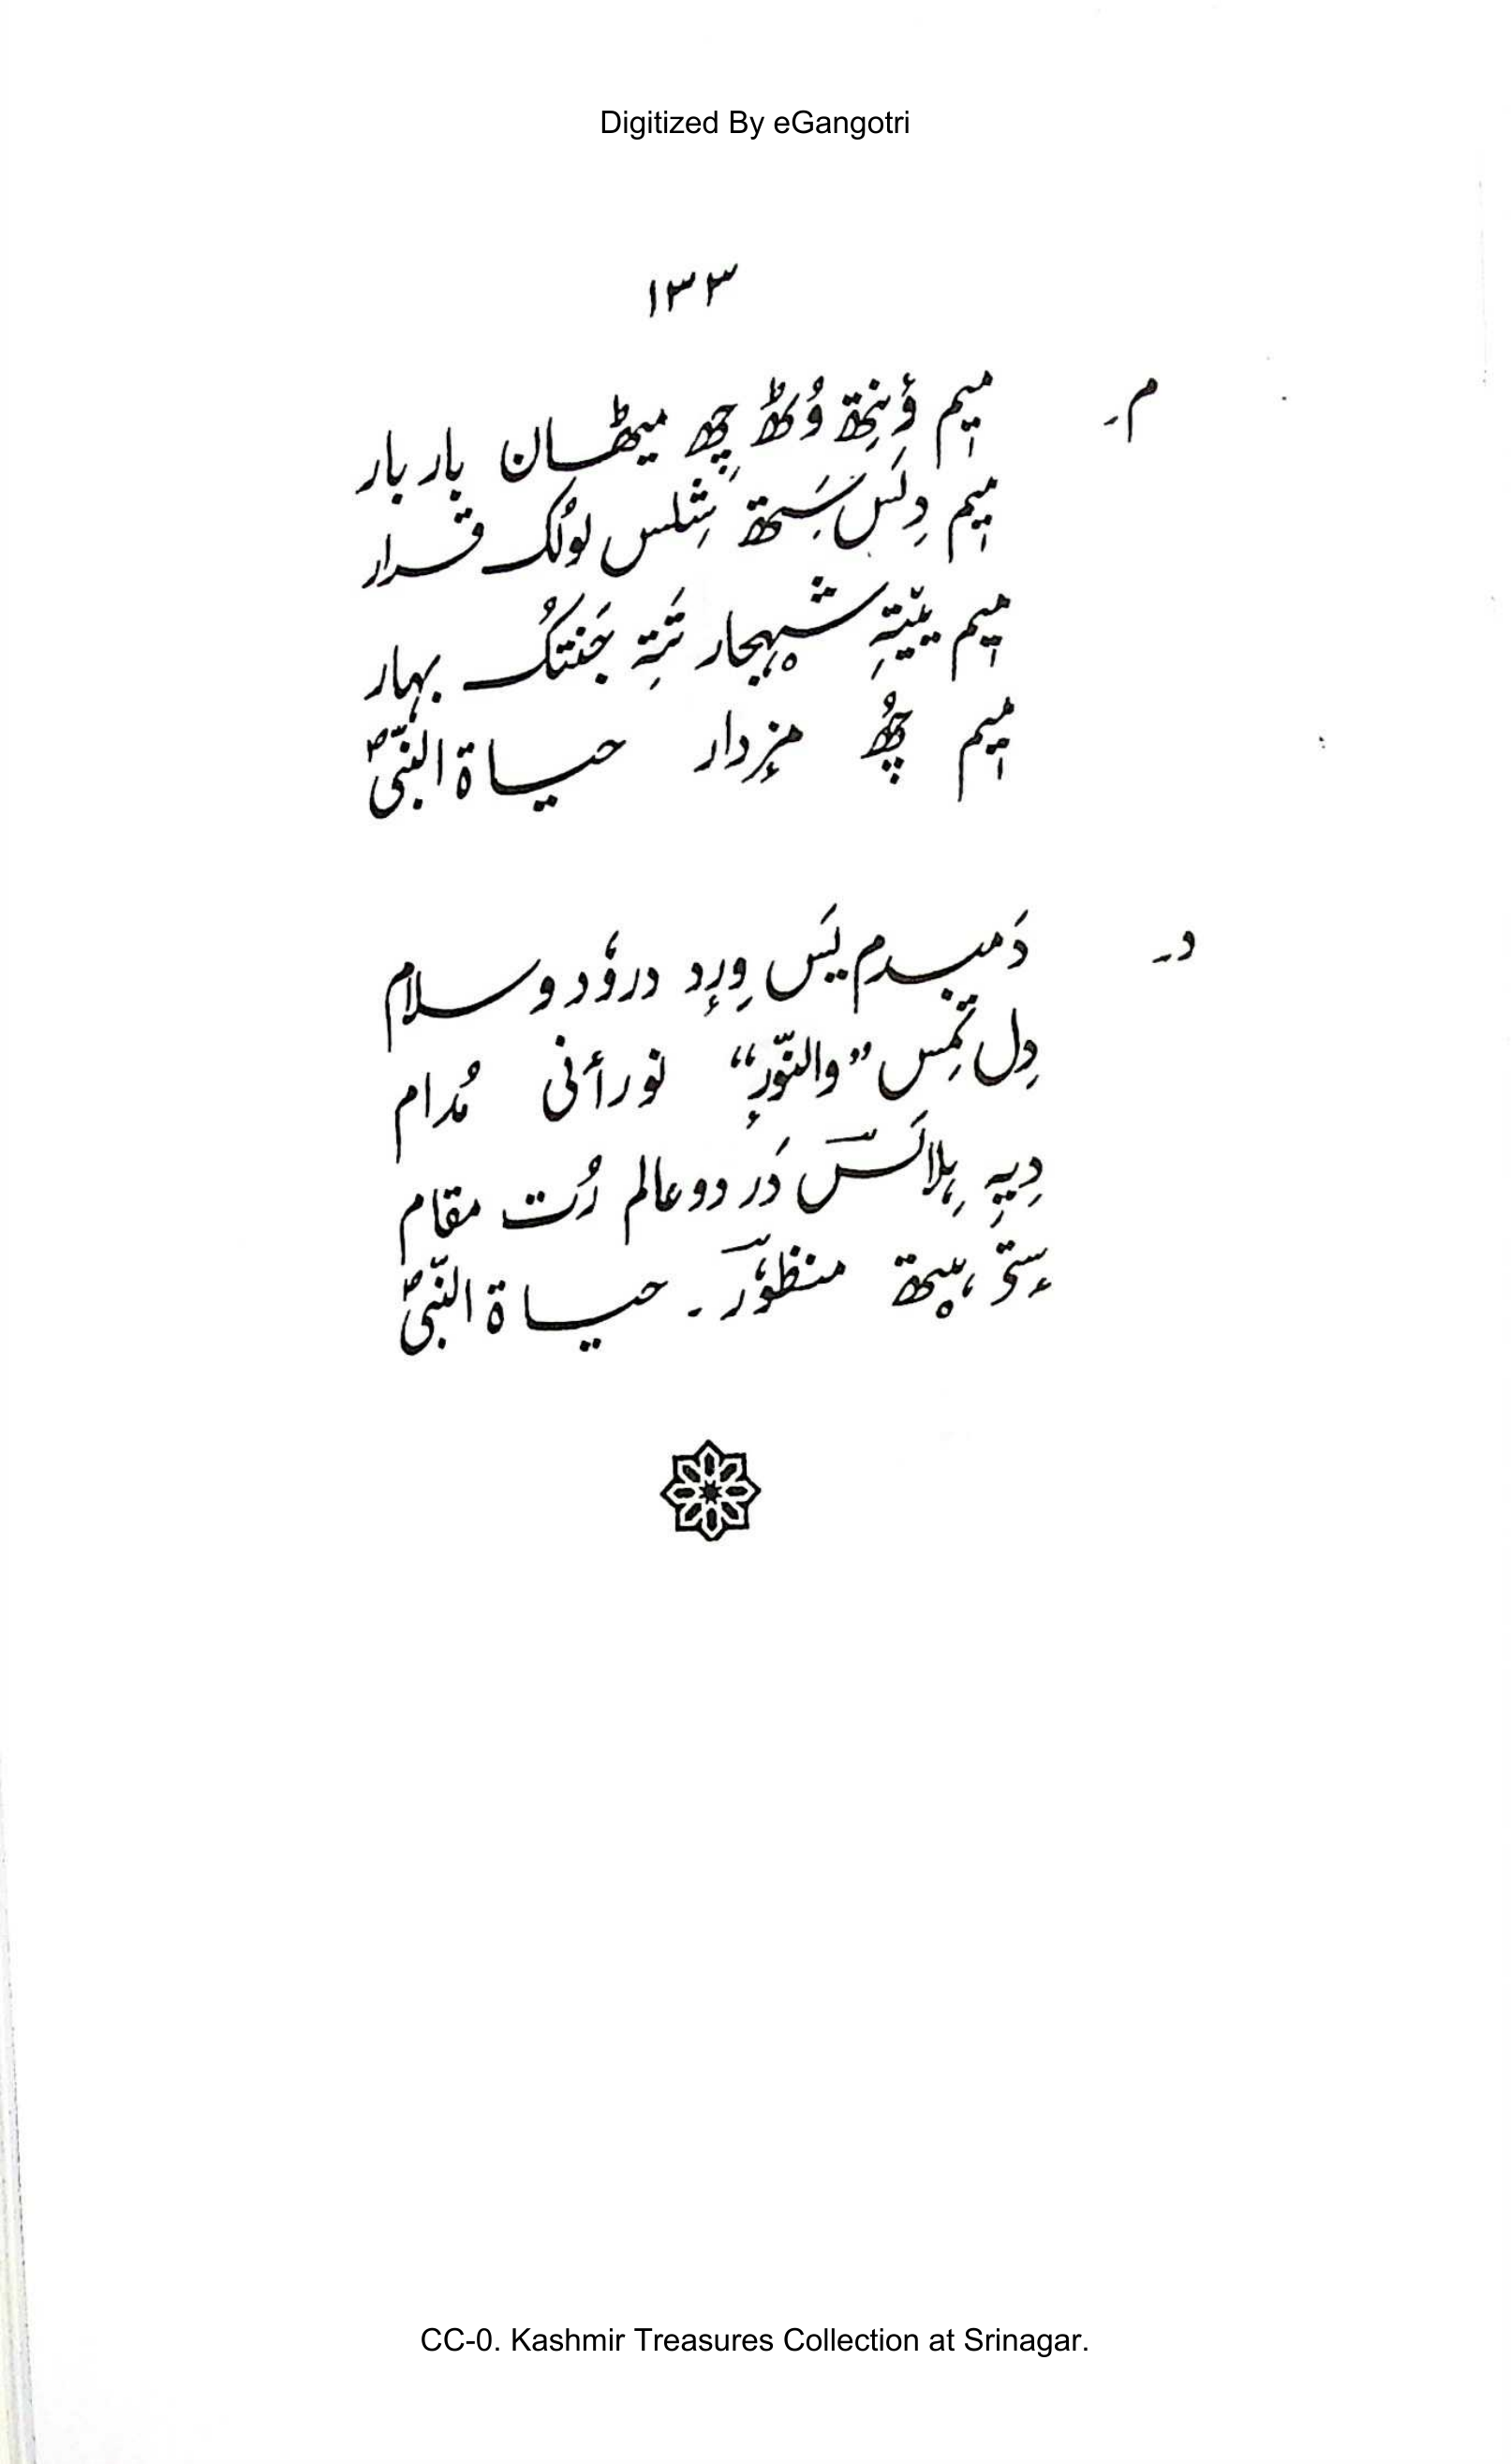 Digitized By eGangotri
۱۳۳
م۔ میم ؤنِتھ وُٹھ چِھ میٹھان بار بار
میم دِلَس سَتھ شِلس لولُک قرار
میم ییٚتہِ شہجار تَتہِ جَنتُک بہار
میم چُھ مزٕدار حیاۃ النبیؐ
د۔ دَمبدم یَس وِرٕد دروٗد و سلام
دِل تَمِس ”والنّورٕ“ نورأنی مُدام
دِیہِ ہِلالَسؔ دَر دو عالم رُت مقام
سٕتۍ ہیتھ منظوٗرؔ۔ حیاۃ النبیؐ
CC-0. Kashmir Treasures Collection at Srinagar.